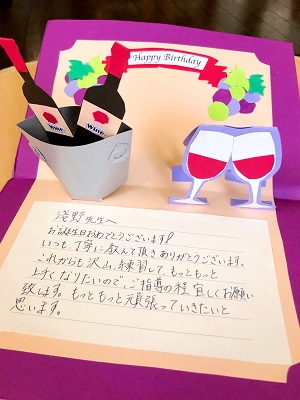 Happy Birthday
Wine
Wine
浅野先生へ
お誕生日おめでとうございます!
いつも丁寧に教えて頂きありがとうございます。
これからも沢山練習して、もっともっと
上手くなりたいので、ご指導の程宜しくお願い
致します。もっともっと頑張っていきたいと
思います。